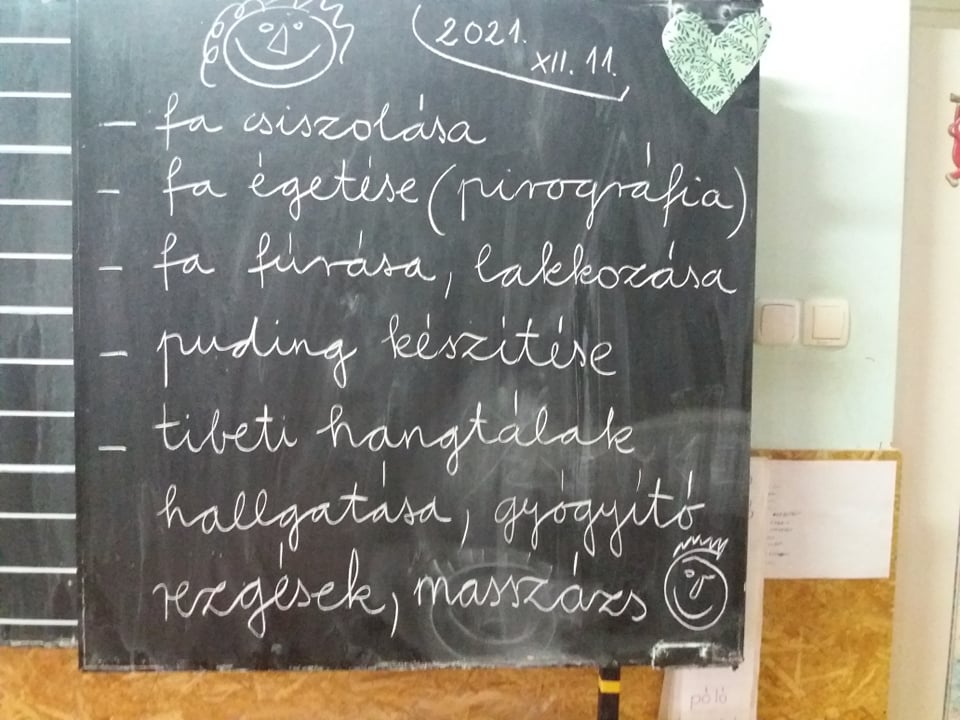 2021.
XII. 11.
- fa csiszolása
- fa égetése (pirográfia)
- fa fúrása, lakkozása
- puding készítése
- tibeti hangtálak
hallgatása, gyógyító
rezgések, masszázs
póló